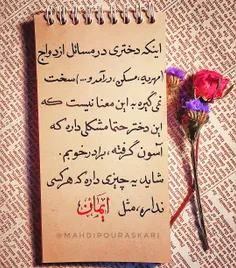 اینکه دختری در مسائل ازدواج
(مهریه، مسکن، درآمد و...) سخت
نمی‌گیره به این معنا نیست که
این دختر حتما مشکلی داره که
آسون گرفته، برادر خوبم.
شاید یه چیزی داره که هرکسی
نداره، مثل ایمان
@MAHDIPOURASKARI